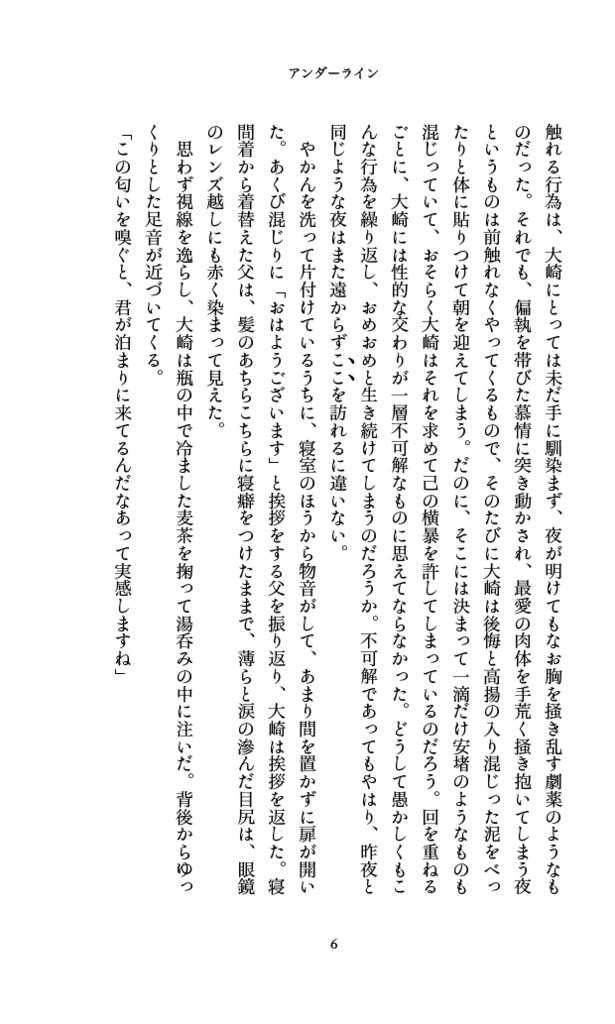 アンダーライン
触れる行為は、大崎にとっては未だ手に馴染まず、夜が明けてもなお胸を掻き乱す劇薬のようなも
のだった。それでも、偏執を帯びた慕情に突き動かされ、最愛の肉体を手荒く掻き抱いてしまう夜
というものは前触れなくやってくるもので、そのたびに大崎は後悔と高揚の入り混じった泥をべっ
たりと体に貼りつけて朝を迎えてしまう。だのに、そこには決まって一滴だけ安堵のようなものも
混じっていて、おそらく大崎はそれを求めて己の横暴を許してしまっているのだろう。回を重ねる
ごとに、大崎には性的な交わりが一層不可解なものに思えてならなかった。どうして愚かしくもこ
んな行為を繰り返し、おめおめと生き続けてしまうのだろうか。不可解であってもやはり、昨夜と
同じような夜はまた遠からずここを訪れるに違いない。
やかんを洗って片付けているうちに、寝室のほうから物音がして、あまり間を置かずに扉が開い
た。あくび混じりに「おはようございます」と挨拶をする父を振り返り、大崎は挨拶を返した。寝
間着から着替えた父は、髪のあちらこちらに寝癖をつけたままで、薄らと涙の滲んだ目尻は、眼鏡
のレンズ越しにも赤く染まって見えた。
思わず視線を逸らし、大崎は瓶の中で冷ました麦茶を掬って湯呑みの中に注いだ。背後からゆっ
くりとした足音が近づいてくる。
「この匂いを嗅ぐと、君が泊まりに来てるんだなあって実感しますね」
6